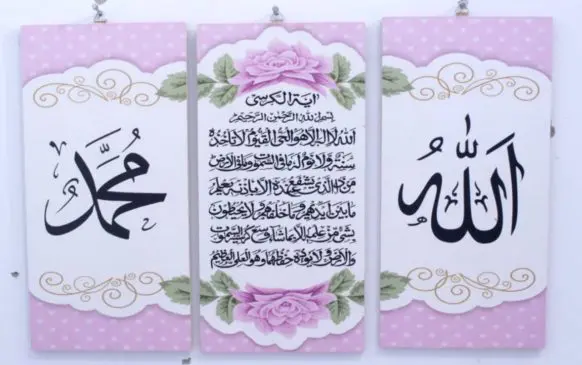 الله
آية الكرسي
بسم الله الرحمن الرحيم
الله لا اله الا هو الحي القيوم لا تاخذه
سنة ولا نوم له ما في السموت وما في الارض
من ذا الذي يشفع عنده الا باذنه يعلم
ما بين ايديهم وما خلفهم ولا يحيطون
بشيء من علمه الا بما شاء وسع كرسيه السموت
والارض ولا يؤده حفظهما وهو العلي العظيم
محمد